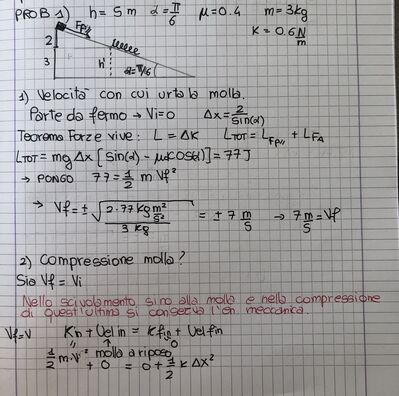 PROB 1) h = 5 m α = π/6 μ = 0.4 m = 3kg
K = 0.6 N/m
Fp//
2
3
h'
α = π/6
1) Velocità con cui urta la molla.
Parte da fermo → Vi = 0 Δx = 2/sin(α)
Teorema Forze vive: L = ΔK LTOT = LFp// + LFA
LTOT = mg Δx [sin(α) - μcos(α)] = 77 J
→ PONGO 77 = 1/2 m Vf²
→ Vf = ± √(2·77 kg m²/s² / 3 kg) = ± 7 m/s → 7 m/s = Vf
2) Compressione molla?
Sia Vf = Vi
Nello scivolamento sino alla molla e nella compressione
di quest'ultima si conserva l'en meccanica.
Vf = V Kin + Uelin = Kfin + Uelfin
" ↑ " 0
molla a riposo
1/2 m·V² + 0 = 0 + 1/2 K Δx²